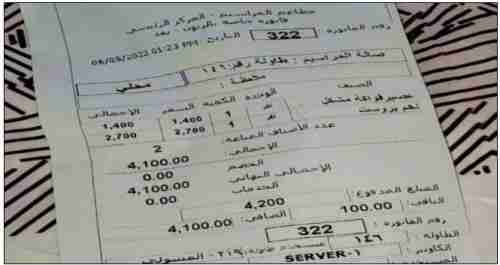 مطاعم المراسيم - المركز الرئيسي
فاتورة خاصة بالزبون - نقد
رقم الفاتورة 322 التاريخ 08/03/2022 01:23 PM
صالة المراسيم : طاولة رقم: ١٤٦ محلي
ملاحظة :
الصنف الوحدة الكمية السعر الإجمالي
عصير فراولة مشكل م 1 1,400 1,400
لحم بروست م 1 2,700 2,700
عدد الأصناف المباعة: 2
الإجمالي: 4,100.00
الخصم 0.00
الإجمالي النهائي 4,100.00
الخدمات 0.00
المبلغ المدفوع: 4,200
الباقي: 100.00 الصافي: 4,100.00
رقم الفاتورة : 322
الطاولة : ١٤٦
الكاونتر : SERVER-١